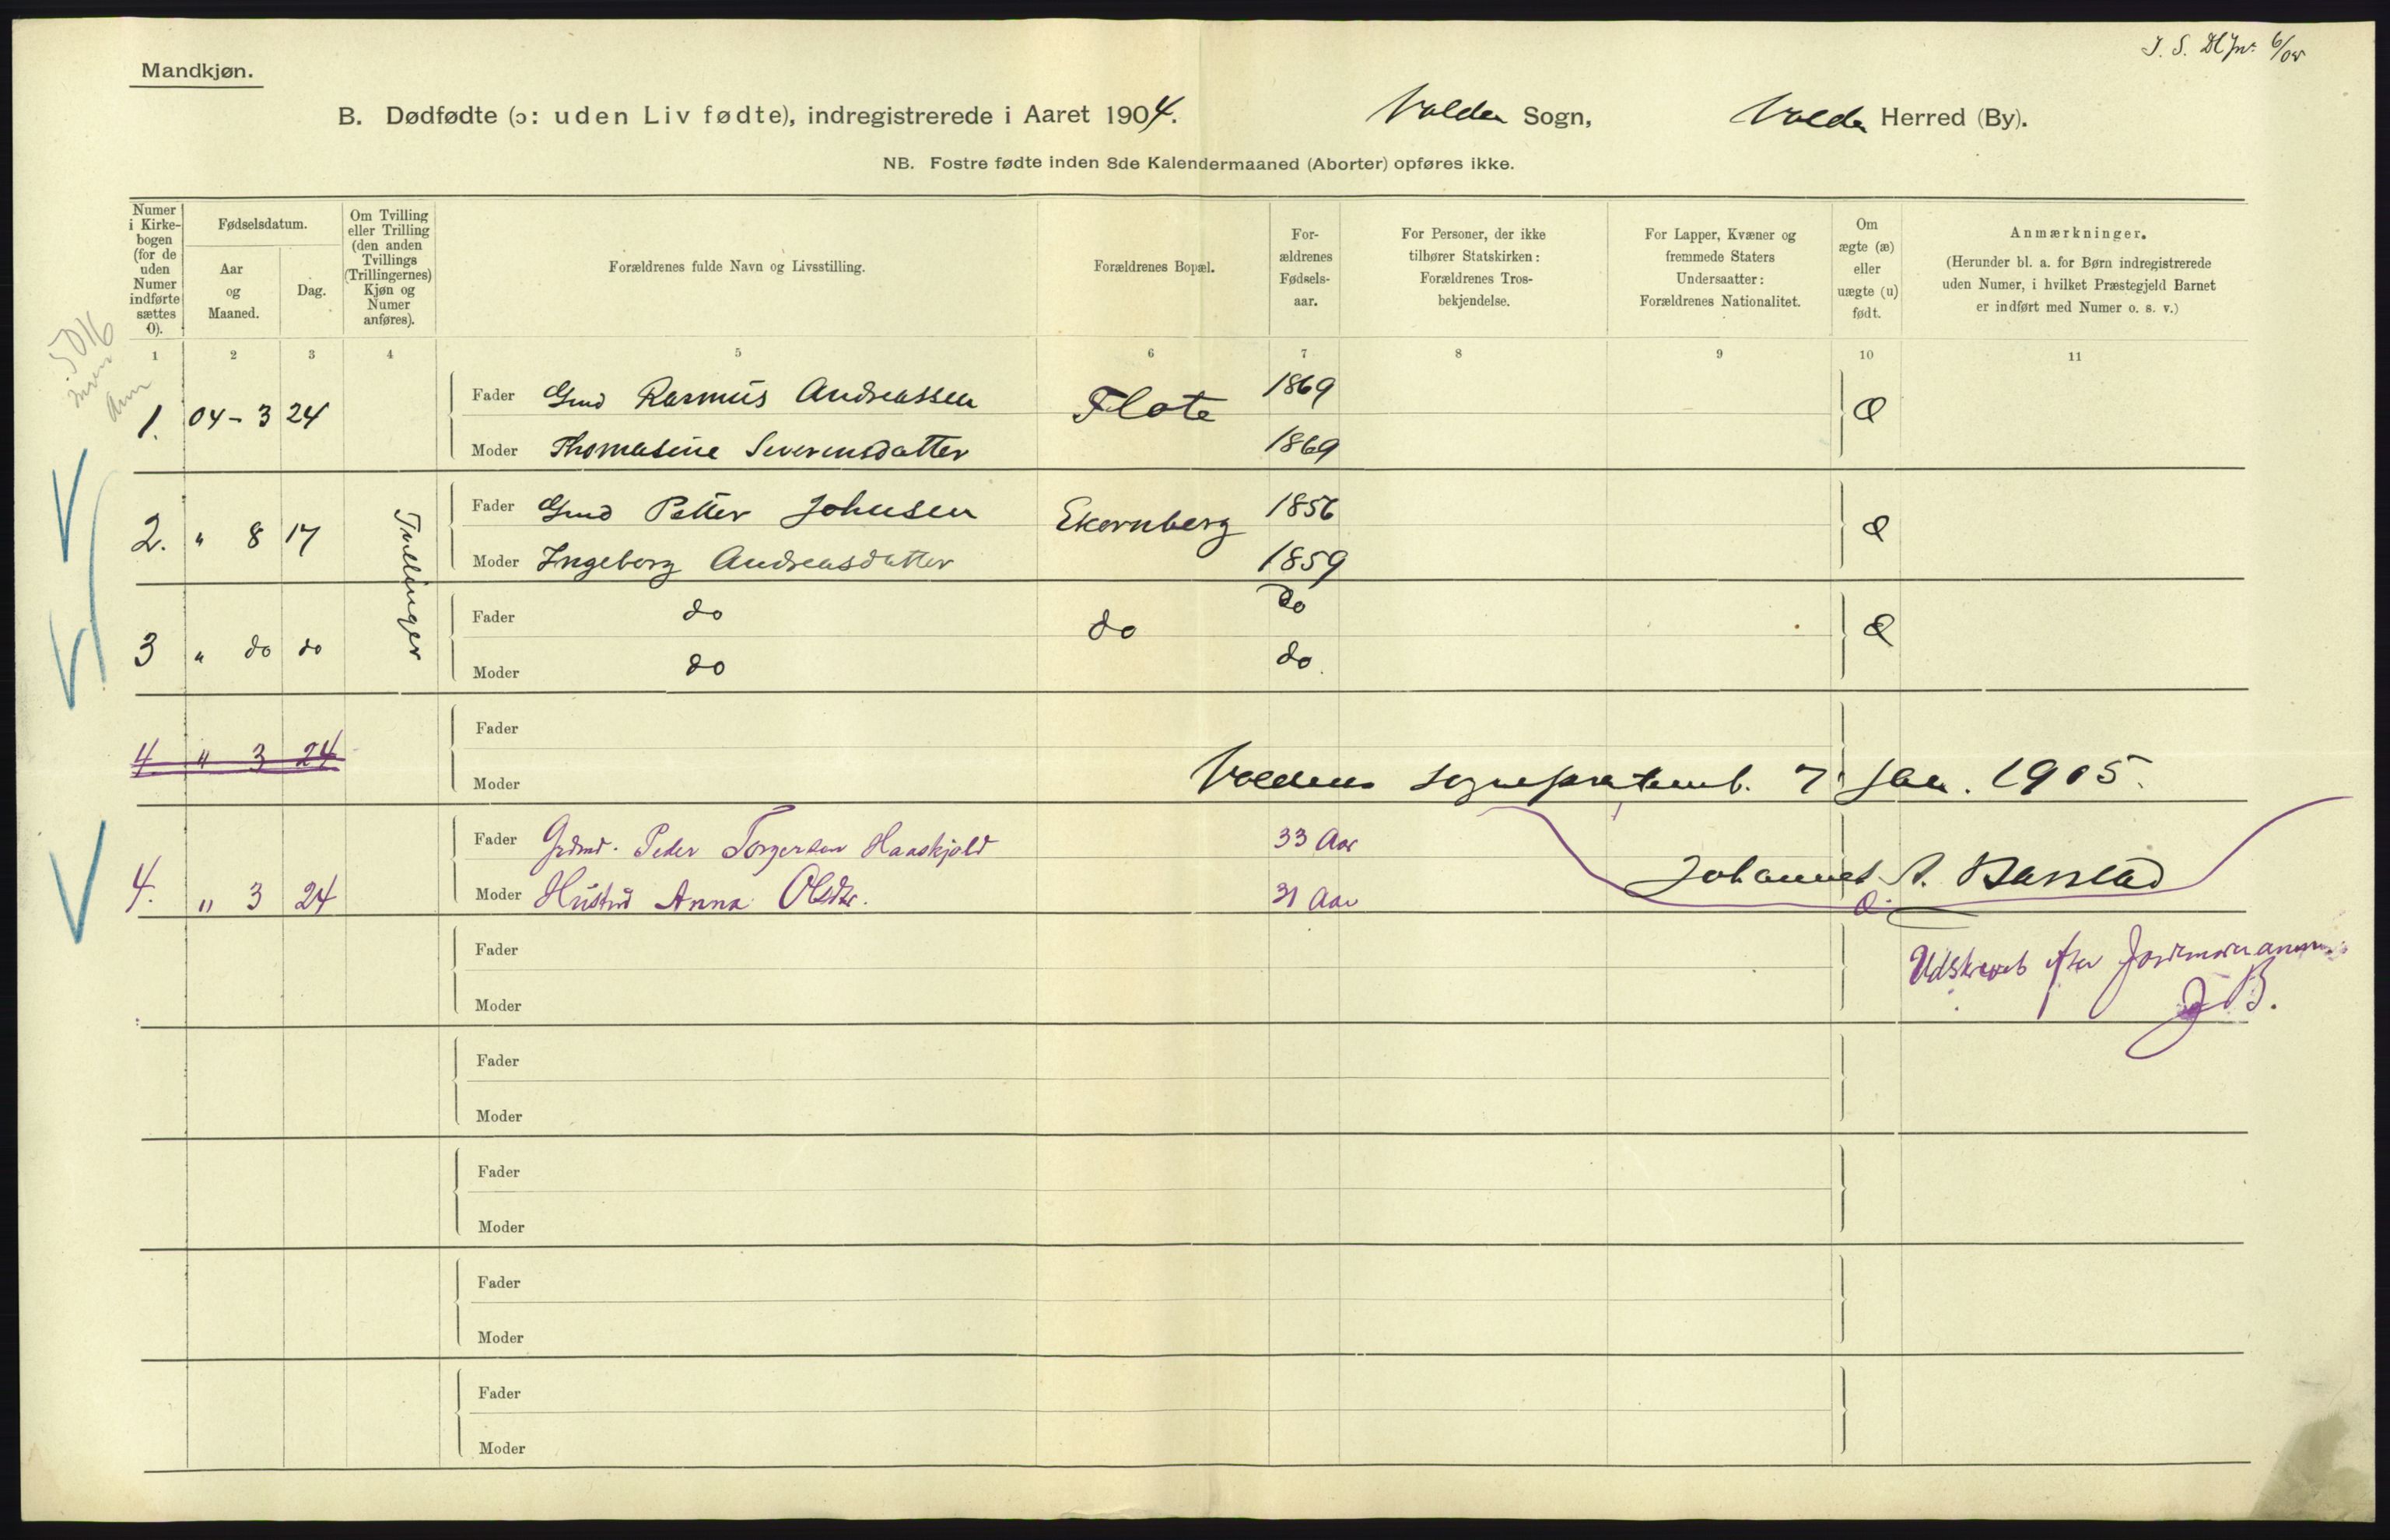 Mandkjøn.
B. Dødfødte (ɔ: uden Liv fødte), indregistrerede i Aaret 1904. Volden Sogn, Volda Herred (By).
NB. Fostre fødte inden 8de Kalendermaaned (Aborter) opføres ikke.
Numer i Kirkebogen (for de uden Numer indførte sættes 0).
Fødselsdatum.
Aar og Maaned.
Dag.
Om Tvilling eller Trilling (den anden Tvillings (Trillingernes) Kjøn og Numer anføres).
Forældrenes fulde Navn og Livsstilling.
Forældrenes Bopæl.
Forældrenes Fødselsaar.
For Personer, der ikke tilhører Statskirken: Forældrenes Trosbekjendelse.
For Lapper, Kvæner og fremmede Staters Undersaatter: Forældrenes Nationalitet.
Om ægte (æ) eller uægte (u) født.
Anmærkninger.
(Herunder bl. a. for Børn indregistrerede uden Numer, i hvilket Præstegjeld Barnet er indført med Numer o. s. v.)
1 2 3 4 5 6 7 8 9 10 11
Fader Gmd Rasmus Andreassen 1869
1. 04-3 24 Flote Æ
Moder Thomasine Severinsdatter 1869
Fader Gmd Petter Johnsen 1856
2. " 8 17 Tvillinger Ekornberg Æ
Moder Ingeborg Andreasdatter 1859
Fader do do
3 " do do do Æ
Moder do do.
Fader
4 " 3 24
Moder
Voldens 7 Jan. 1905.
Fader Grdmd. Peder Torgersen Haaskjold 33 Aar
4. " 3 24
Moder Hustru Anna Olsdtr. 31 Aar Æ.
Johannes A. Barstad
Fader
Udskrevet efter
J B.
Moder
Fader
Moder
Fader
Moder
Fader
Moder
Fader
Moder